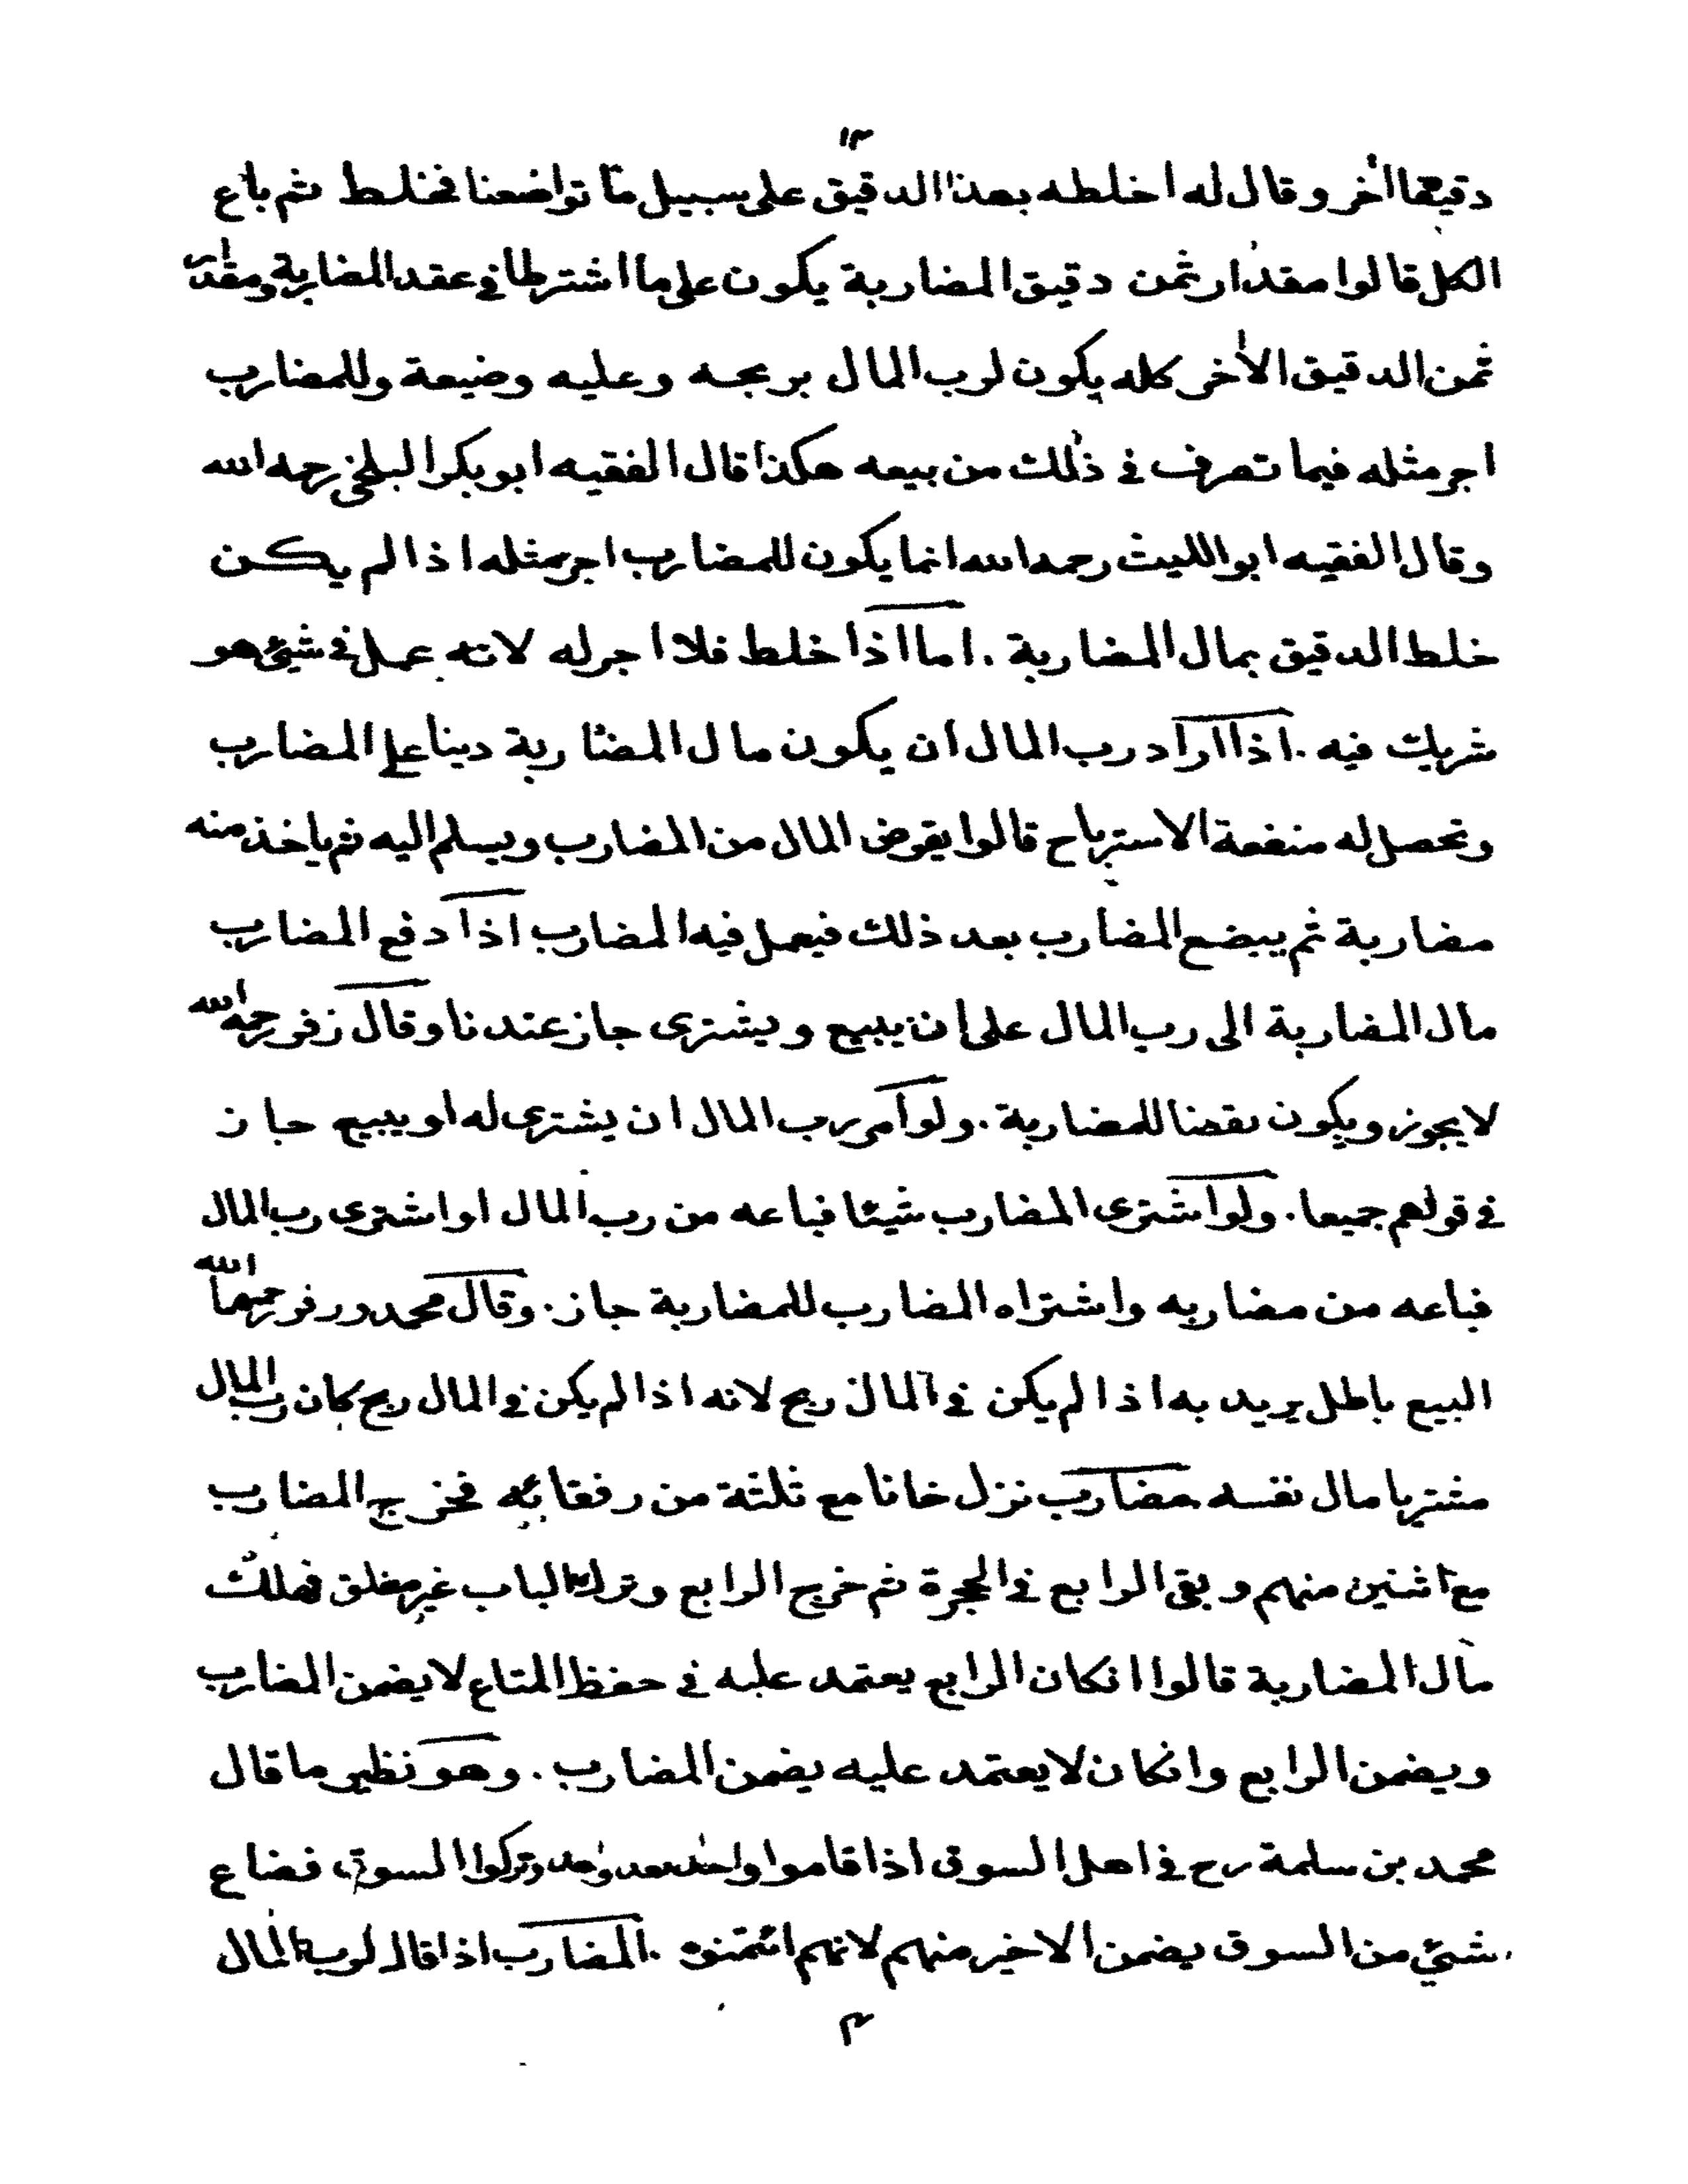 ١٣
دقيقا اٰخر وقال له اخلطه بهذا الدقيق على سبيل ما تواضعنا فخلط ثم باع
الكل قالوا مقدار ثمن دقيق المضاربة يكون على ما اشترطا في عقد المضاربة ومقدار
ثمن الدقيق الاٰخر كله يكون لرب المال بربحه وعليه وضيعة وللمضارب
اجر مثله فيما تصرف في ذٰلك من بيعه هكذا قال الفقيه ابو بكر البلخي رحمه الله
وقال الفقيه ابو الليث رحمه الله انما يكون للمضارب اجر مثله اذا لم يكن
خلط الدقيق بمال المضاربة . اما اذا خلط فلا اجر له لانه عمل في شيئ هو
شريك فيه . اذا اراد رب المال ان يكون مال المضاربة دينا على المضارب
وتحصل له منفعة الاسترباح قالوا يقرض المال من المضارب ويسلم اليه ثم ياخذ منه
مضاربة ثم يبضع المضارب بعد ذلك فيعمل فيه المضارب اذا دفع المضارب
مال المضاربة الى رب المال على ان يبيع ويشترى جاز عندنا وقال زفر رحمه الله
لا يجوز ويكون نقضا للمضاربة . ولو امر رب المال ان يشترى له او يبيع جاز
في قولهم جميعا . ولو اشترى المضارب شيئا فباعه من رب المال او اشترى رب المال
فباعه من مضاربه واشتراه المضارب للمضاربة جاز . وقال محمد وزفر رحمهما الله
البيع باطل يريد به اذا لم يكن في المال ربح لانه اذا لم يكن في المال ربح كان رب المال
مشتريا مال نفسه مضارب نزل خانا مع ثلثة من رفقائه فخرج المضارب
مع اثنين منهم وبقى الرابع في الحجرة ثم خرج الرابع وترك الباب غير مغلق فهلك
مال المضاربة قالوا انكان الرابع يعتمد عليه في حفظ المتاع لا يضمن المضارب
ويضمن الرابع وانكان لا يعتمد عليه يضمن المضارب . وهو نظير ما قال
محمد بن سلمة رح في اهل السوق اذا قاموا واحد بعد واحد وتركوا السوق فضاع
شيئ من السوق يضمن الاخير منهم لانهم ائتمنوه . المضارب اذا قال لرب المال
م